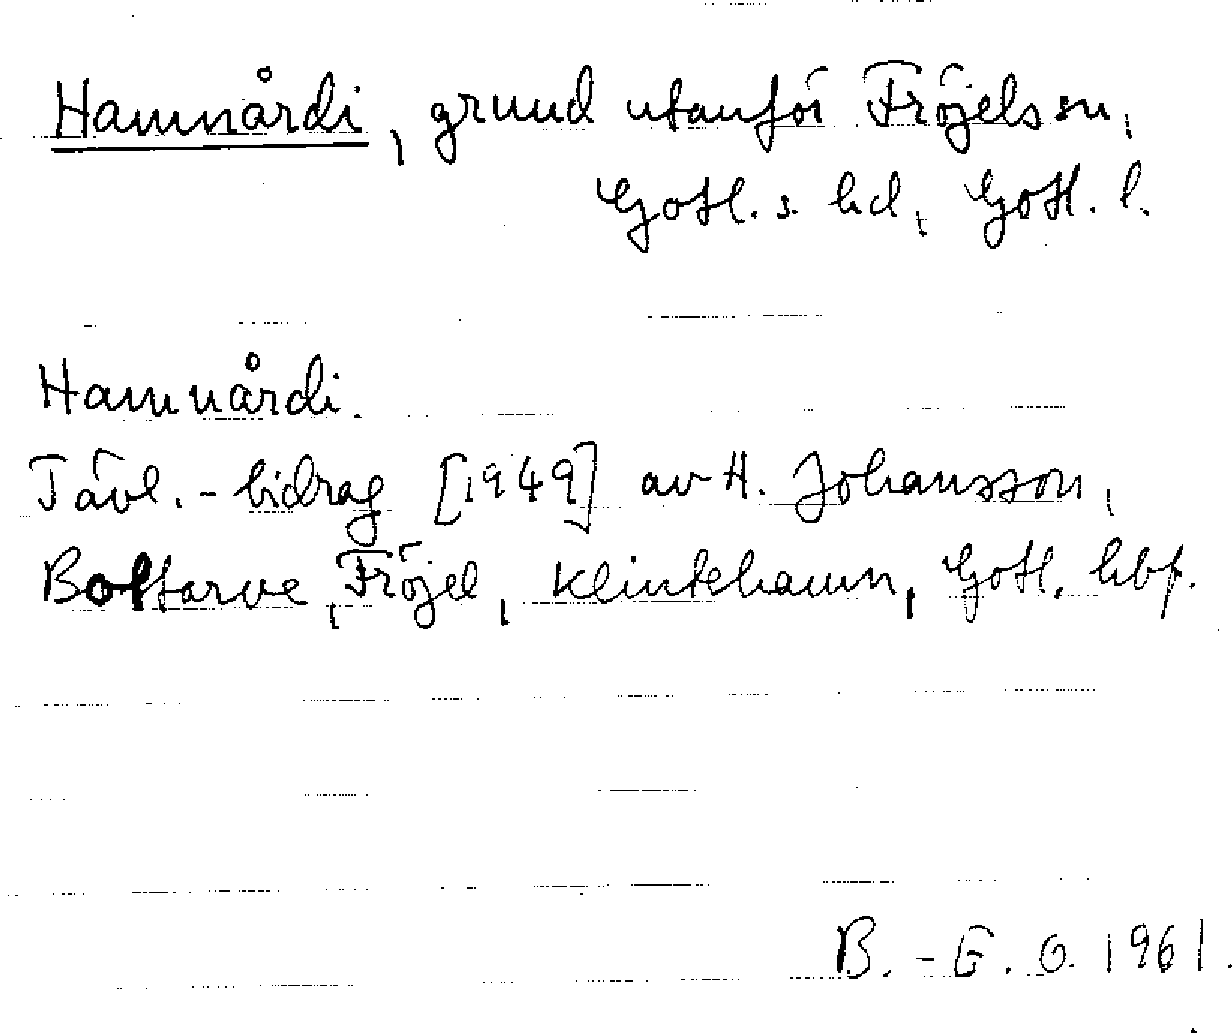 Hamnårdi, grund utanför Fröjels sn,
Gotl. s. hd, Gotl. l.
Hamnårdi.
Tävl.-bidrag [1949] av H. Johansson,
Bottarve, Fröjel, Klintehamn, Gotl. hbf.
B.-G. O. 1961.